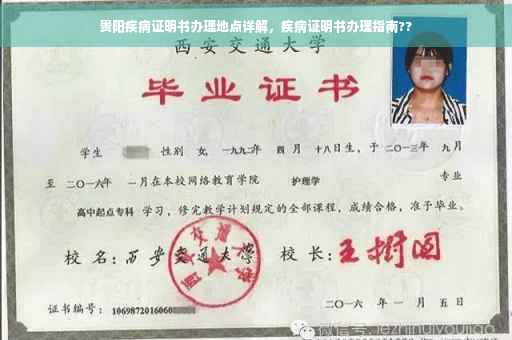 贵阳疾病证明书办理地点详解，疾病证明书办理指南??
西安交通大学
毕业证书
学生 性别 女，一九九二年 四月 十八日生，于二〇一三年 九月
至 二〇一六年 一月在本校网络教育学院 护理学 专业
高中起点专科 学习，修完教学计划规定的全部课程，成绩合格，准予毕业。
校名：西安交通大学 校长：王树国
西安交通大学
证书编号：1069872016060
二〇一六年 一月 五日
微信号: jezhihuiyoujiao